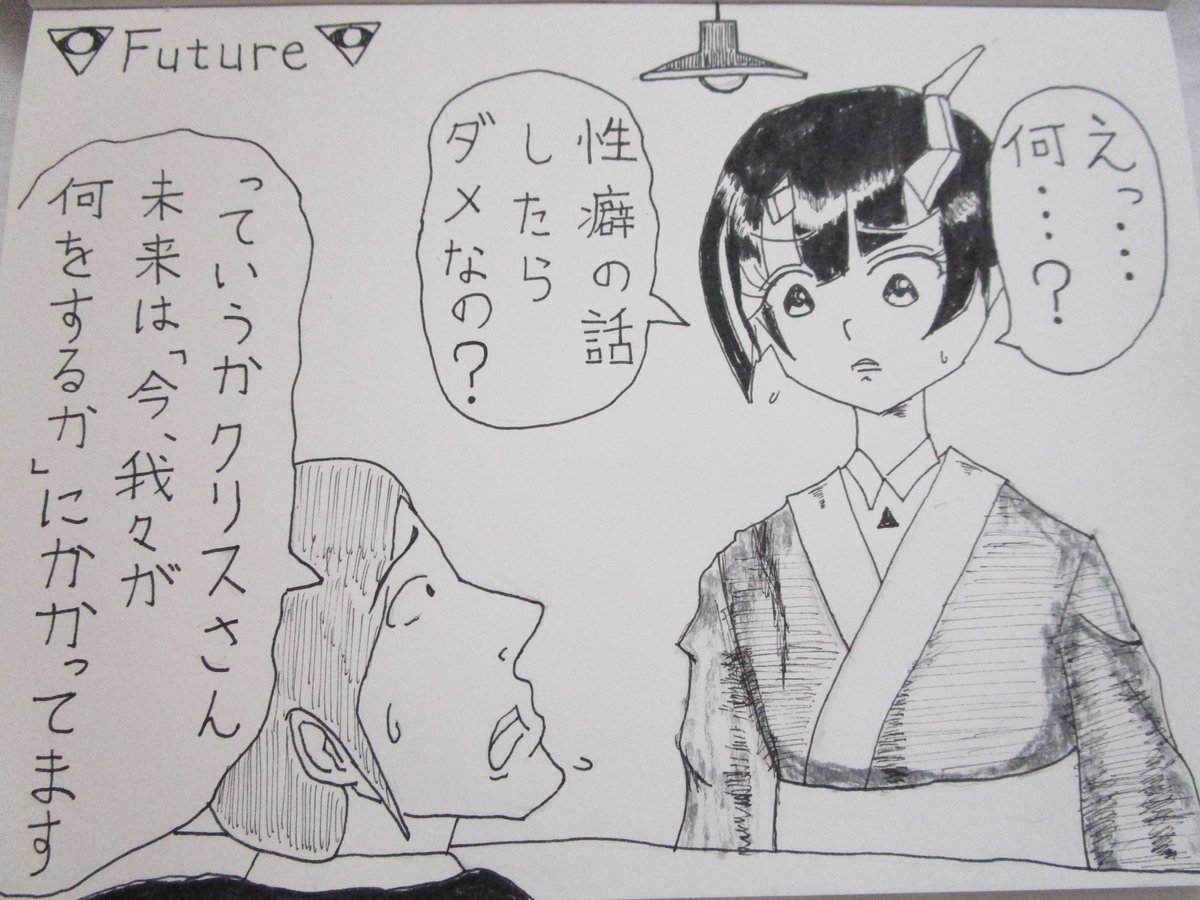 Future
えっ‥‥
何‥‥?
性癖の話
したら
ダメなの?
っていうかクリスさん
未来は「今、我々が
何をするか」にかかってます